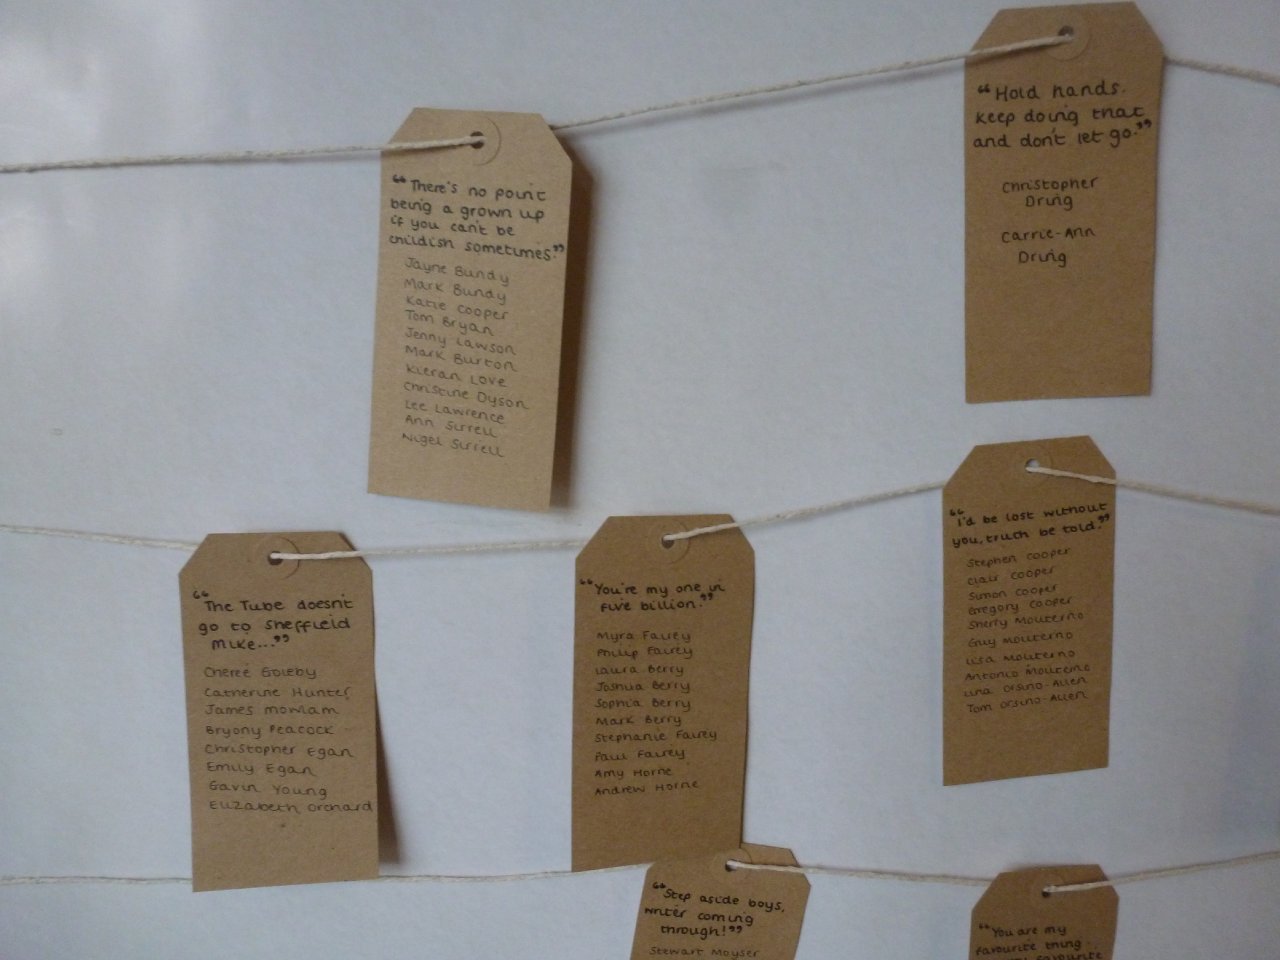 “There's no point
being a grown up
if you can't be
childish sometimes.”
Jayne Bundy
Mark Bundy
Katie Cooper
Tom Bryan
Jenny Lawson
Mark Burton
Kieran Love
Christine Dyson
Lee Lawrence
Ann Sirrell
Nigel Sirrell
“Hold hands.
Keep doing that
and don't let go.”
Christopher
Dring
Carrie-Ann
Dring
“The Tube doesn't
go to Sheffield
Mike...”
Chereé Goleby
Catherine Hunter
James Mowlam
Bryony Peacock
Christopher Egan
Emily Egan
Gavin Young
Elizabeth Orchard
“You're my one in
five billion.”
Myra Fairey
Philip Fairey
Laura Berry
Joshua Berry
Sophia Berry
Mark Berry
Stephanie Fairey
Paul Fairey
Amy Horne
Andrew Horne
“I'd be lost without
you, truth be told.”
Stephen Cooper
Clair Cooper
Simon Cooper
Gregory Cooper
Sherry Mouterno
Guy Mouterno
Lisa Mouterno
Antonio Mouterno
Lina Orsino-Allen
Tom Orsino-Allen
“Step aside boys,
writer coming
through!”
Stewart Moyser
“You are my
favourite thing.
favourite